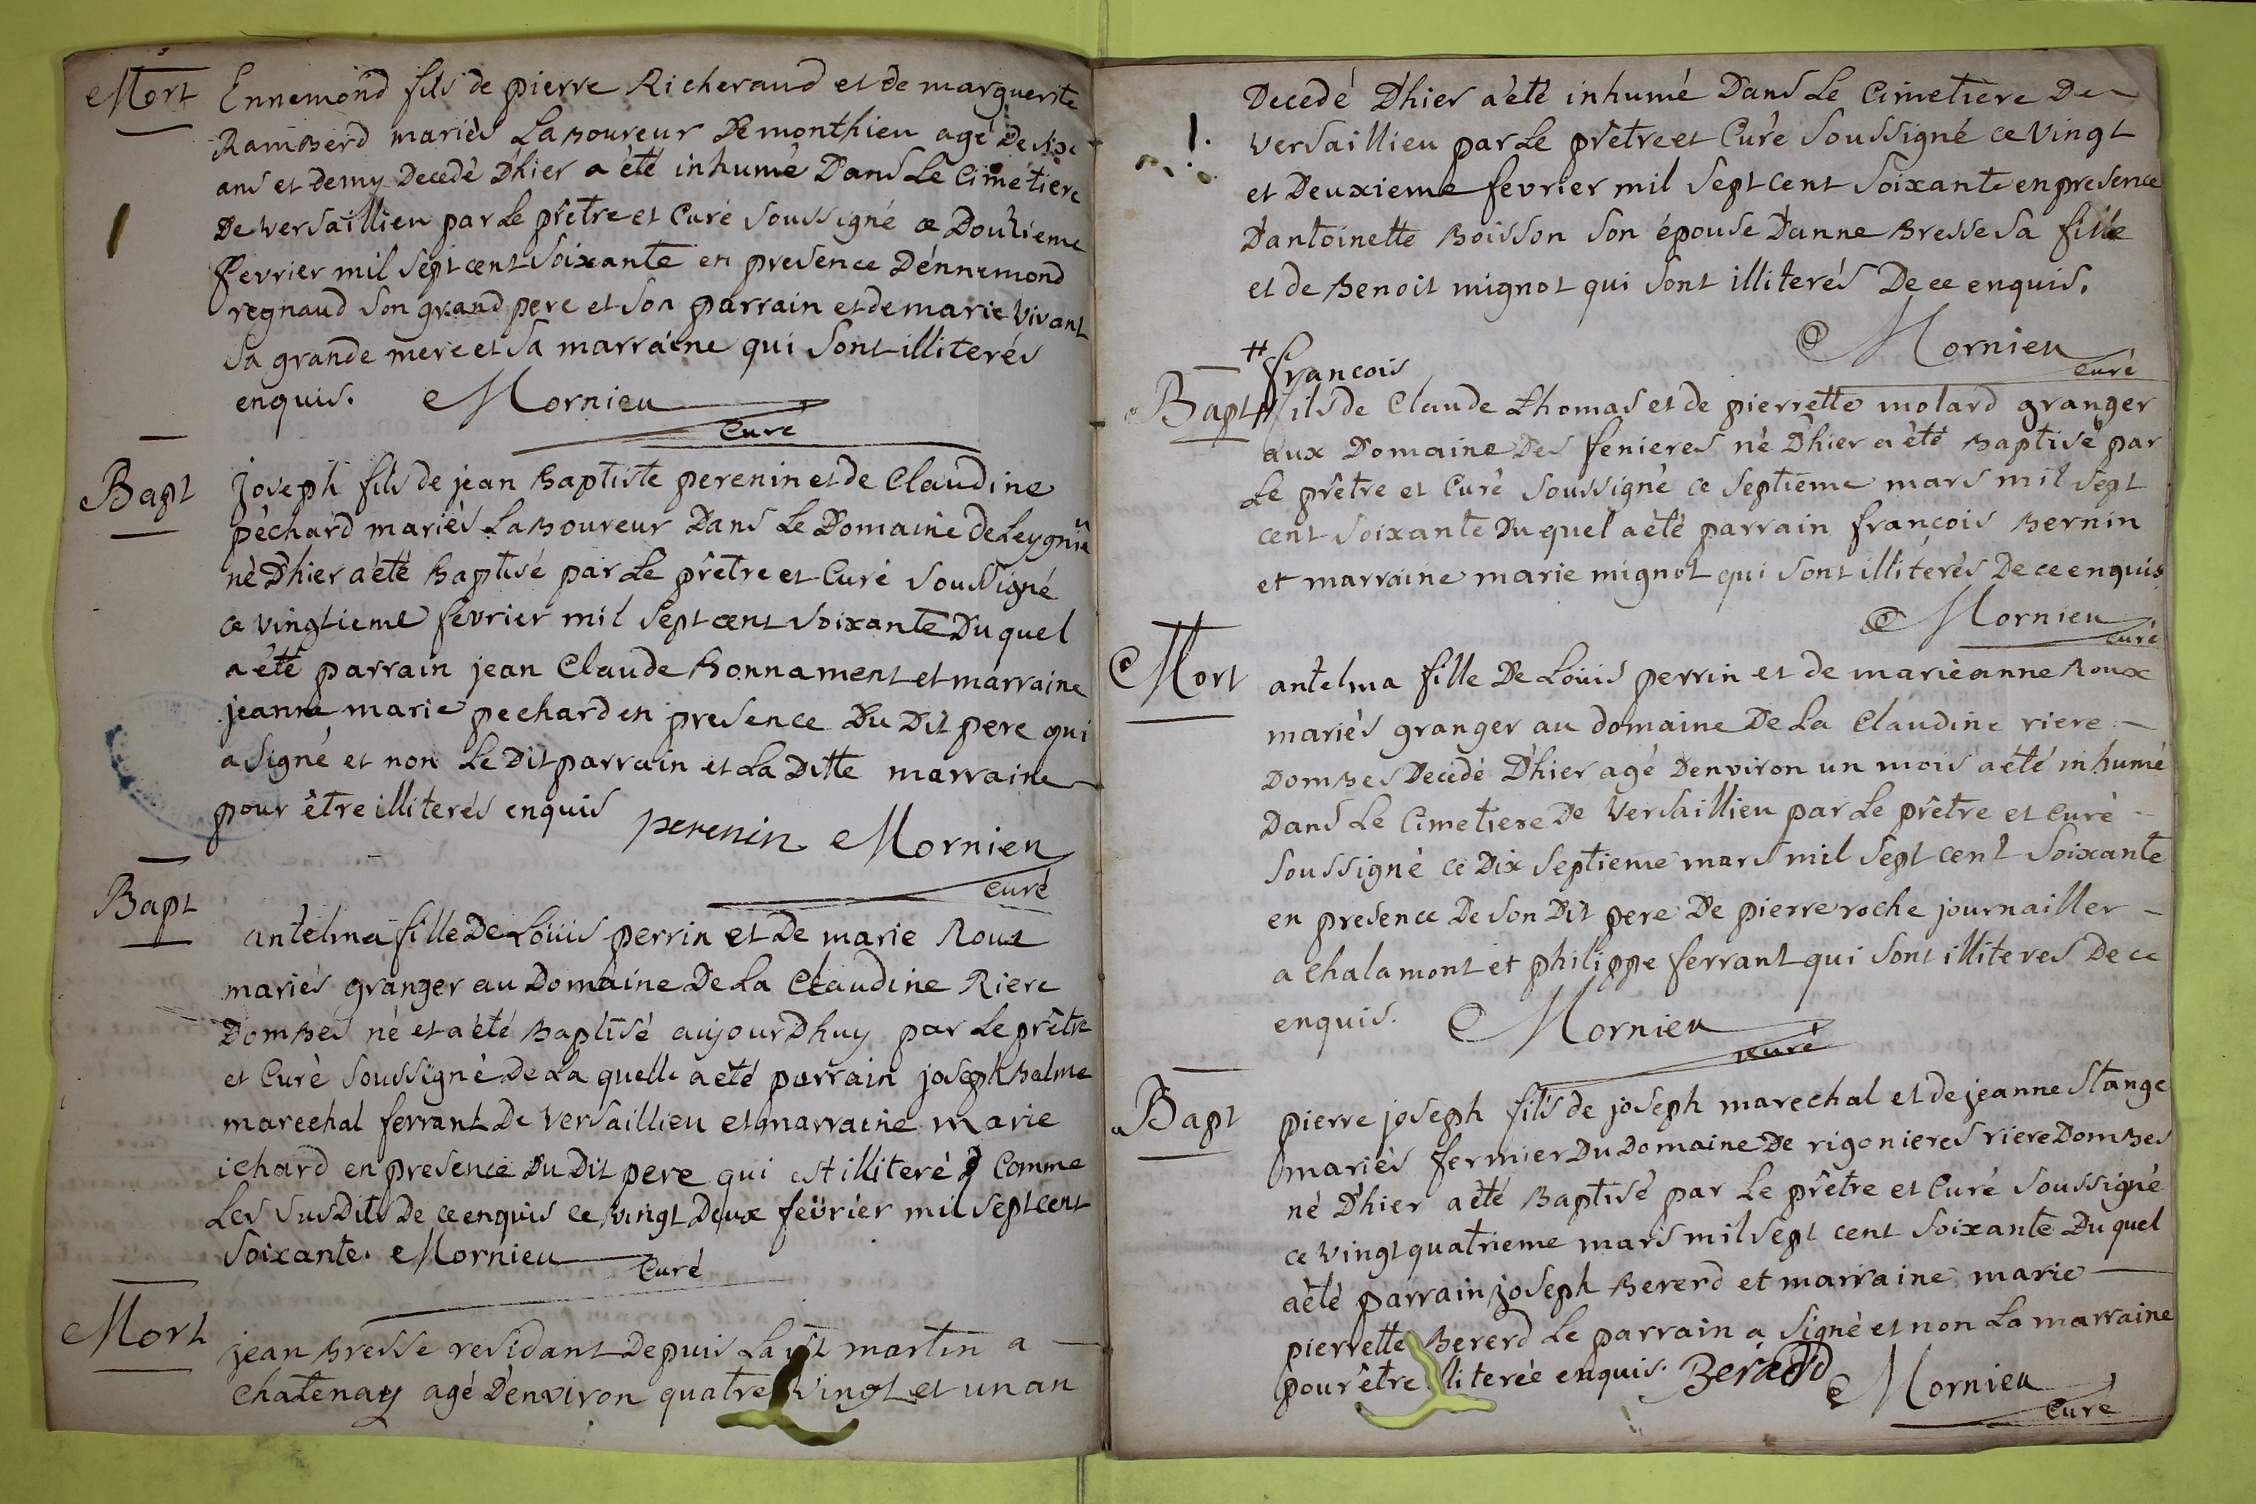 Mort
Ennemond fils de pierre Richeraud et de marguerite
RamBerd mariés LaBoureur De monthieu agé De six
ans et demy Decedé D'hier a été inhumé Dans Le Cimétiere
De versaillieu par Le prêtre et Curé Soussigné ce Douzieme
fevrier mil sept cent Soixante en presence D'énnemond
regnaud son grand pere et son parrain et de marie vivant
sa grande mere et sa marraine qui sont illiterés
enquis. Mornieu
Curé
Bapt
joseph fils de jean Baptiste perenin et de Claudine
péchard mariés LaBoureur Dans Le Domaine de Leygnu
né D'hier a été Baptisé par Le prêtre et Curé Soussigné
ce vingtieme fevrier mil sept cent soixante Du quel
a été parrain jean Claude Bonnament et marraine
jeanne marie pechard en presence Du Dit pere qui
a signé et non Le Dit parrain et La Ditte marraine
pour être illiterés enquis perenin Mornieu
Curé
Bapt
antelma fille De Loüis perrin et De marie Roux
mariés granger au Domaine De La Claudine Riere
DomBes né et a été Baptisé aujourDhuy par Le prêtre
et Curé Soussigné De La quelle a été parrain joseph Balme
marechal ferrant De versaillieu et marraine marie
ichard en presence Du Dit pere qui est illiteré Comme
Les susDits De ce enquis ce vingt Deux février mil sept cent
Soixante. Mornieu Curé
Mort
jean Bresse residant Depuis La st martin a
chatenay agé D'environ quatre vingt et un an
Decedé D'hier a été inhumé Dans Le Cimetiere De
versaillieu par Le prêtre et Curé Soussigné ce vingt
et Deuxieme fevrier mil sept cent Soixante en presence
D'antoinette Boisson son épouse D'anne Bresse sa fille
et de Benoit mignot qui sont illiterés De ce enquis.
Mornieu
Curé
# francois
Bapt # fils de Claude thomas et de pierrette molard granger
aux Domaine Des fenieres né D'hier a été Baptisé par
Le prêtre et Curé Soussigné ce septieme mars mil sept
cent soixante Du quel a été parrain francois Bernin
et marraine marie mignot qui sont illiterés De ce enquis
Mornieu
Curé
Mort
antelma fille De Loüis perrin et de marie anne Roux
mariés granger au domaine De La Claudine riere
DomBes Decedé D'hier agé D'environ un mois a été inhumé
Dans Le Cimetiere De versaillieu par Le prêtre et Curé
Soussigné ce Dix septieme mars mil sept cent Soixante
en presence De son Dit pere De pierre roche journailler
a chalamont et philippe ferrant qui sont illiteres De ce
enquis. Mornieu
Curé
Bapt
pierre joseph fils de joseph marechal et de jeanne Stange
mariés fermier Du Domaine De rigonieres riere DomBes
né D'hier a été Baptisé par Le prêtre et Curé Soussigné
ce vingt quatrieme mars mil sept cent Soixante Du quel
a été parrain joseph Bererd et marraine marie
pierrette Bererd Le parrain a signé et non La marraine
pour être illiterée enquis. Bererd Mornieu
Curé